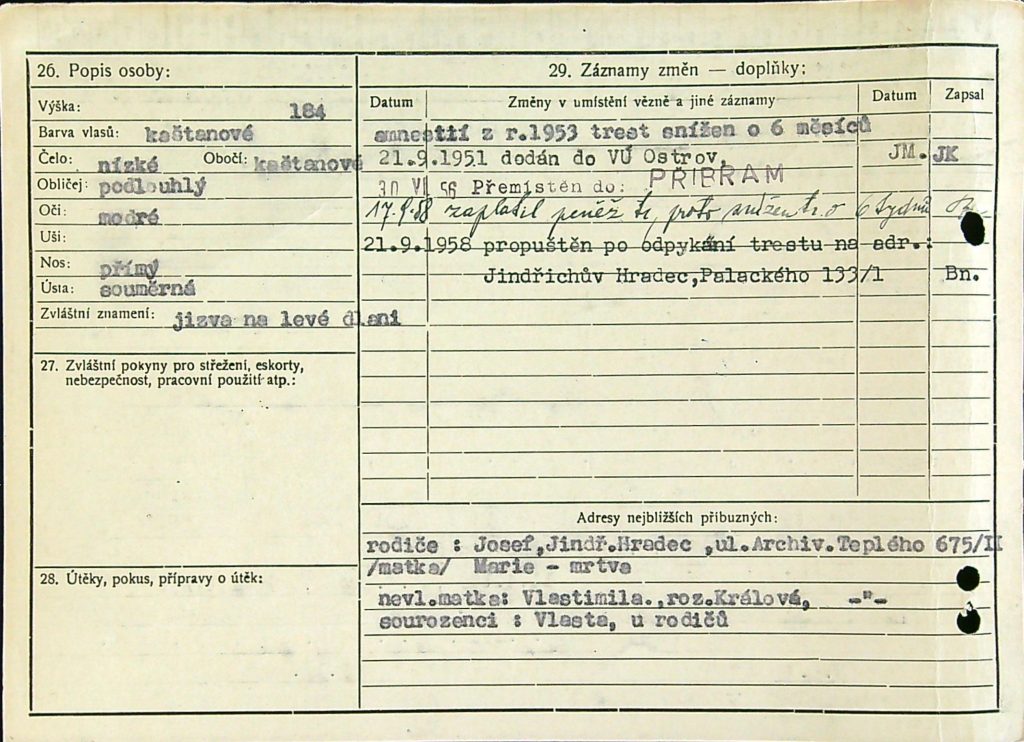 26. Popis osoby:
Výška: 184
Barva vlasů: kaštanové
Čelo: nízké Obočí: kaštanové
Obličej: podlouhlý
Oči: modré
Uši:
Nos: přímý
Ústa: souměrná
Zvláštní znamení: jizva na levé dlani
27. Zvláštní pokyny pro střežení, eskorty,
nebezpečnost, pracovní použití atp.:
28. Útěky, pokus, přípravy o útěk:
29. Záznamy změn — doplňky:
Datum Změny v umístění vězně a jiné záznamy Datum Zapsal
amnestií z r.1953 trest snížen o 6 měsíců
21.9.1951 dodán do VÚ Ostrov, JM. JK
30 VI 56 Přemístěn do: PŘÍBRAM
zaplatil peněž tr, proto snížen tr. o 6 týdnů
21.9.1958 propuštěn po odpykání trestu na adr.:
Jindřichův Hradec,Palackého 133/1 Bn.
Adresy nejbližších příbuzných:
rodiče : Josef,Jindř.Hradec ,ul.Archiv.Teplého 675/II
/matka/ Marie - mrtva
nevl.matka: Vlastimila.,roz.Králová, -"-
sourozenci : Vlasta, u rodičů